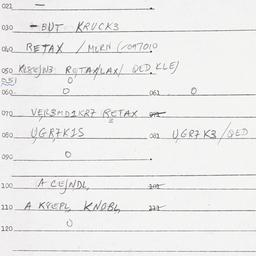 021 —
030 -BUT KRUCK3
040 RETAX /MLKN (/OAT010
050 KLBE/N3 RETAX/LAX/ QED KLE/
060 O 061 O
070 VER3MD1KR7 RETAX 071
080 UGR7K1S 081 UGR7K3 /QED
090 O
100 A CE/NDL 101
110 A KREPL KNOBL 111
120 O